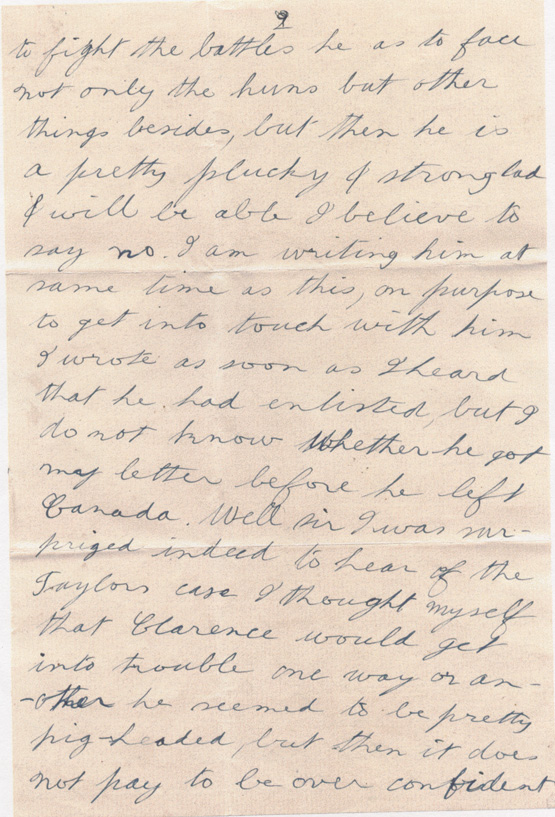 9
to fight the battles he as to face
not only the huns but other
things besides, but then he is
a pretty plucky & strong lad
& will be able I believe to
say no. I am writing him at
same time as this, on purpose
to get into touch with him
I wrote as soon as I heard
that he had enlisted, but I
do not know whether he got
my letter before he left
Canada. Well sir I was sur-
prized indeed to hear of the
Taylors case I thought myself
that Clarence would get
into trouble one way or an-
-other he seemed to be pretty
pig-headed, but then it does
not pay to be over confident